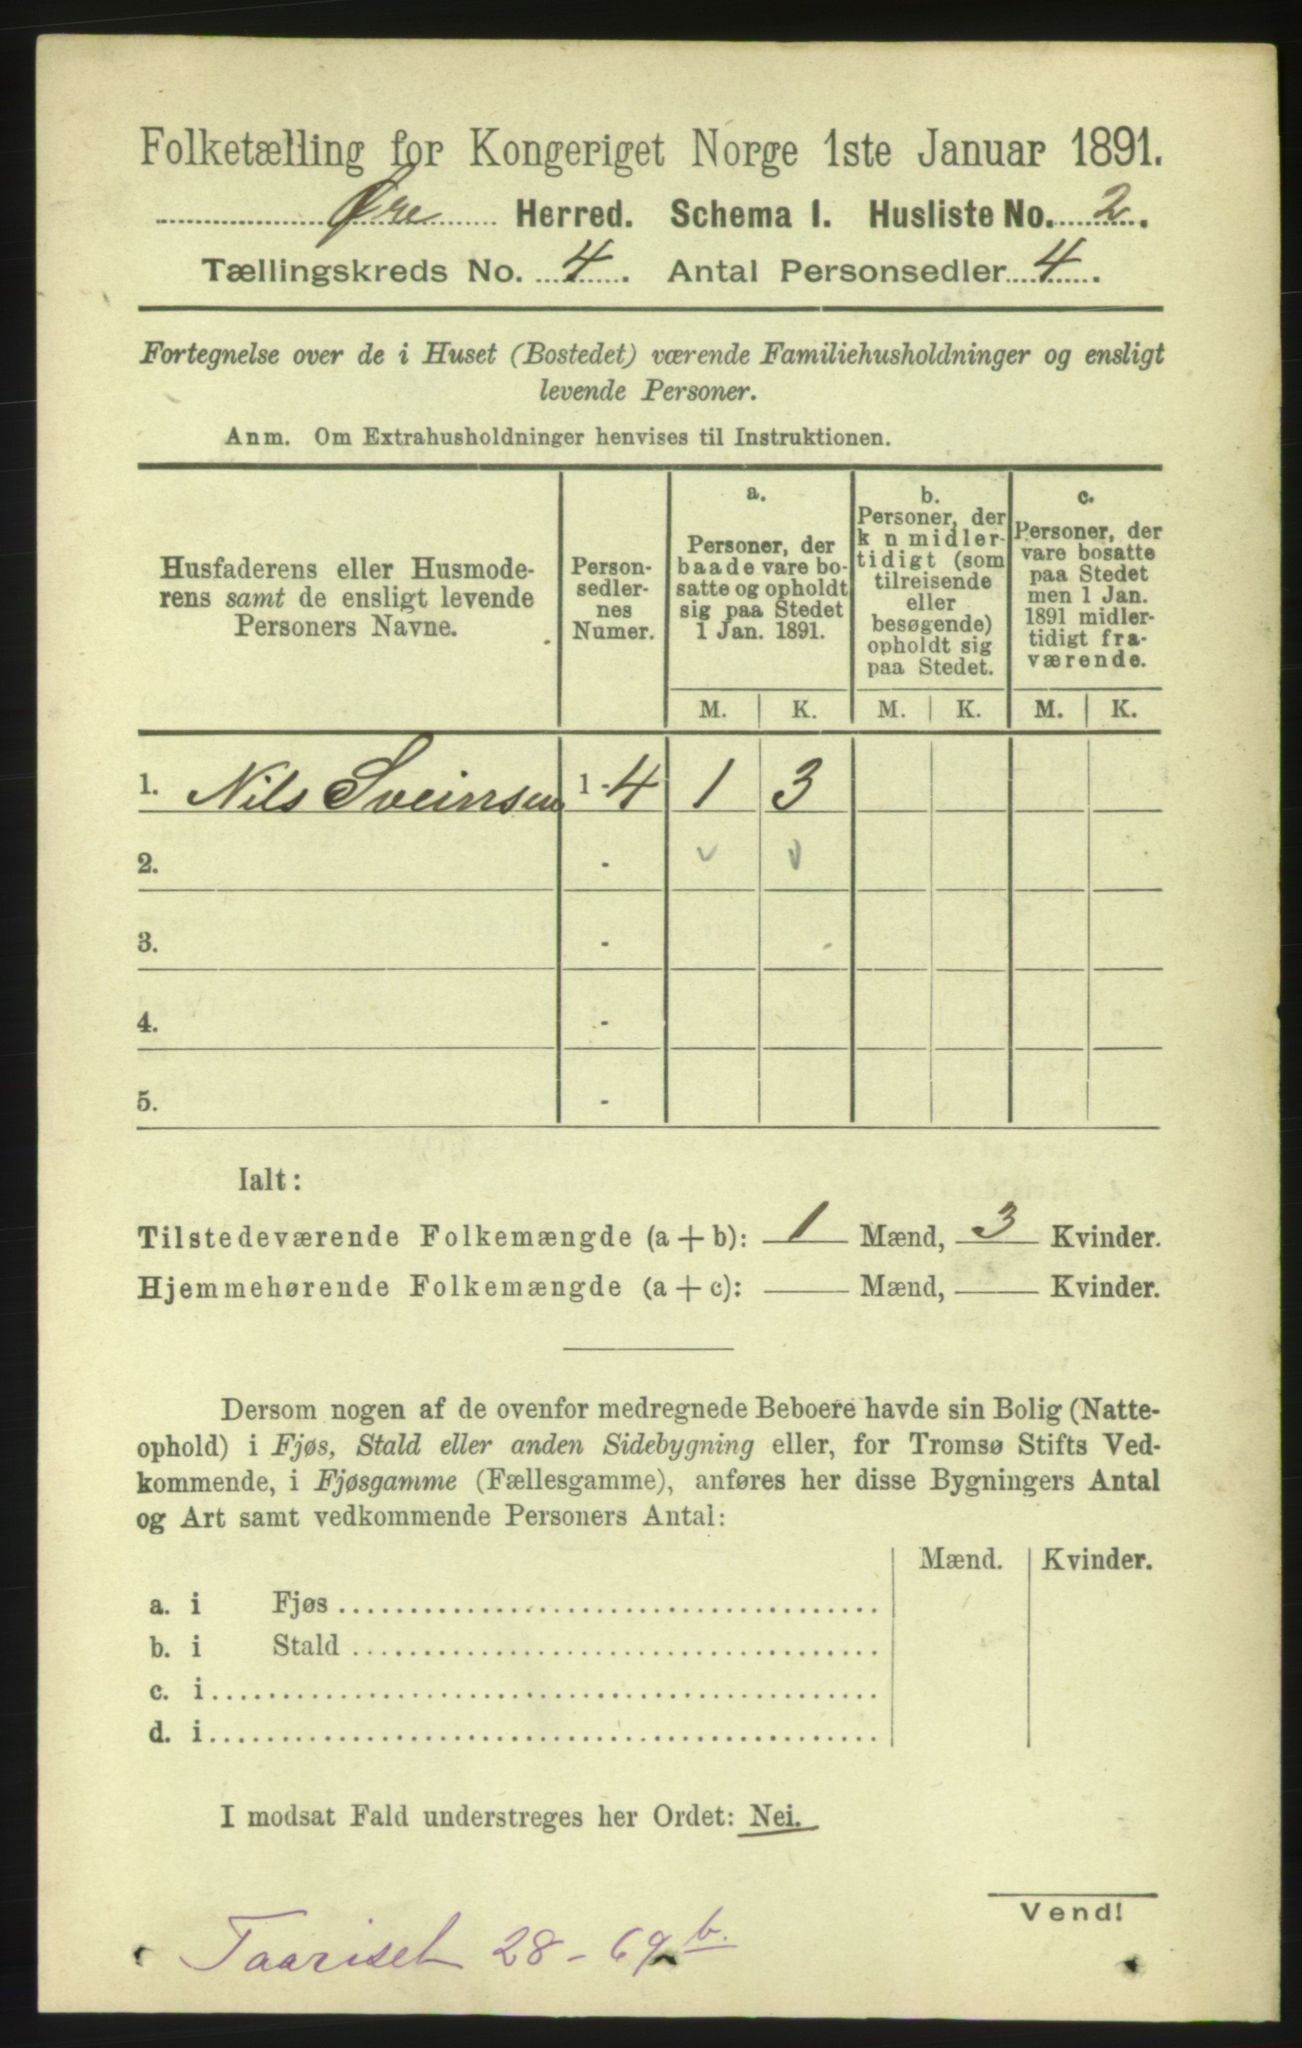 Folketælling for Kongeriget Norge 1ste Januar 1891.
Øre Herred. Schema I. Husliste No. 2.
Tællingskreds No. 4. Antal Personsedler 4.
Fortegnelse over de i Huset (Bostedet) værende Familiehusholdninger og ensligt
levende Personer.
Anm. Om Extrahusholdninger henvises til Instruktionen.
Husfaderens eller Husmode-
rens samt de ensligt levende
Personers Navne.
Person-
sedler-
nes
Numer.
a.
Personer, der
baade vare bo-
satte og opholdt
sig paa Stedet
1 Jan. 1891.
b.
Personer, der
k n midler-
tidigt (som
tilreisende
eller
besøgende)
opholdt sig
paa Stedet.
c.
Personer, der
vare bosatte
paa Stedet
men 1 Jan.
1891 midler-
tidigt fra-
værende.
M. K. M. K. M. K.
1. Nils Sveinsen 1 - 4 1 3
2. -
3. -
4. -
5. -
Ialt:
Tilstedeværende Folkemængde (a + b): 1 Mænd, 3 Kvinder.
Hjemmehørende Folkemængde (a + c): Mænd, Kvinder.
Dersom nogen af de ovenfor medregnede Beboere havde sin Bolig (Natte-
ophold) i Fjøs, Stald eller anden Sidebygning eller, for Tromsø Stifts Ved-
kommende, i Fjøsgamme (Fællesgamme), anføres her disse Bygningers Antal
og Art samt vedkommende Personers Antal:
Mænd. Kvinder.
a. i Fjøs
b. i Stald
c. i
d. i
I modsat Fald understreges her Ordet: Nei.
Vend!
Taariset 28 - 69 b.